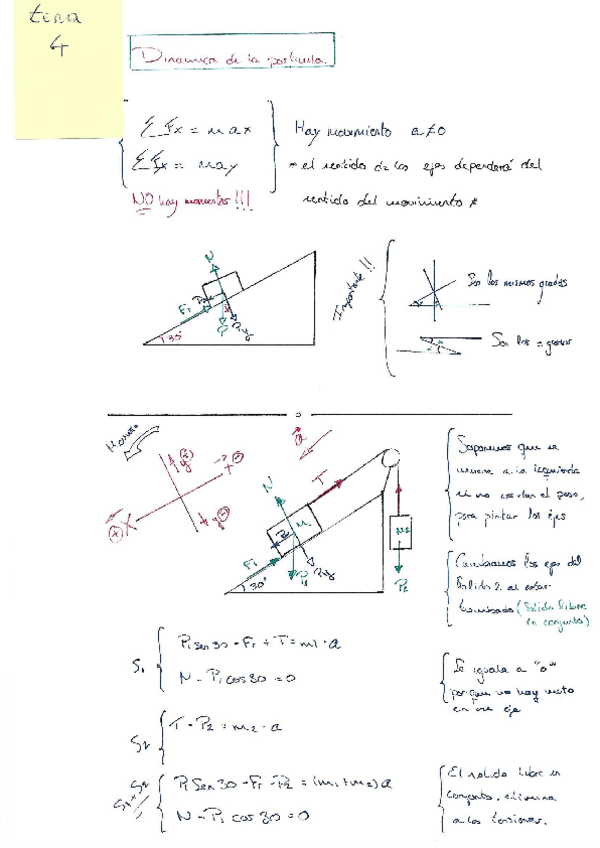 tema
4
Dinamica de la particula.
ΣFx = m ax
ΣFx = may
NO hay momentos!!!
Hay movimiento a≠0
* el sentido de los ejes dependerá del
sentido del movimiento *
N
Fr
P
Py
30°
Importante!!
Son los mismos grados
Son los = grados
a
N
T
m1
Fr
P1
Py
30°
m2
P2
Suponemos que se
mueve a la izquierda
si no el peso,
para pintar los ejes
Cambiamos los ejes del
Solido 2 al estar
(Solido libre
en conjunto)
S1
P1 sen 30 - Fr + T = m1 · a
N - P1 cos 30 = 0
Se iguala a "0"
porque no hay
en ese eje
S2
T - P2 = m2 · a
S1+S2
P1 Sen 30 - Fr - P2 = (m1+m2) a
N - P1 cos 30 = 0
El solido libre en
conjunto, elimina
a las tensiones.